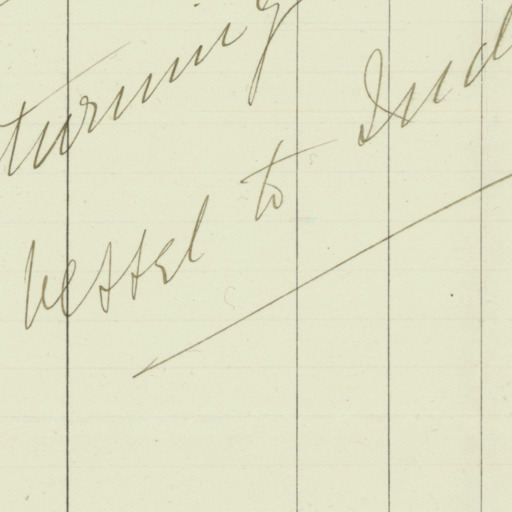 turning
Vessel to Ind